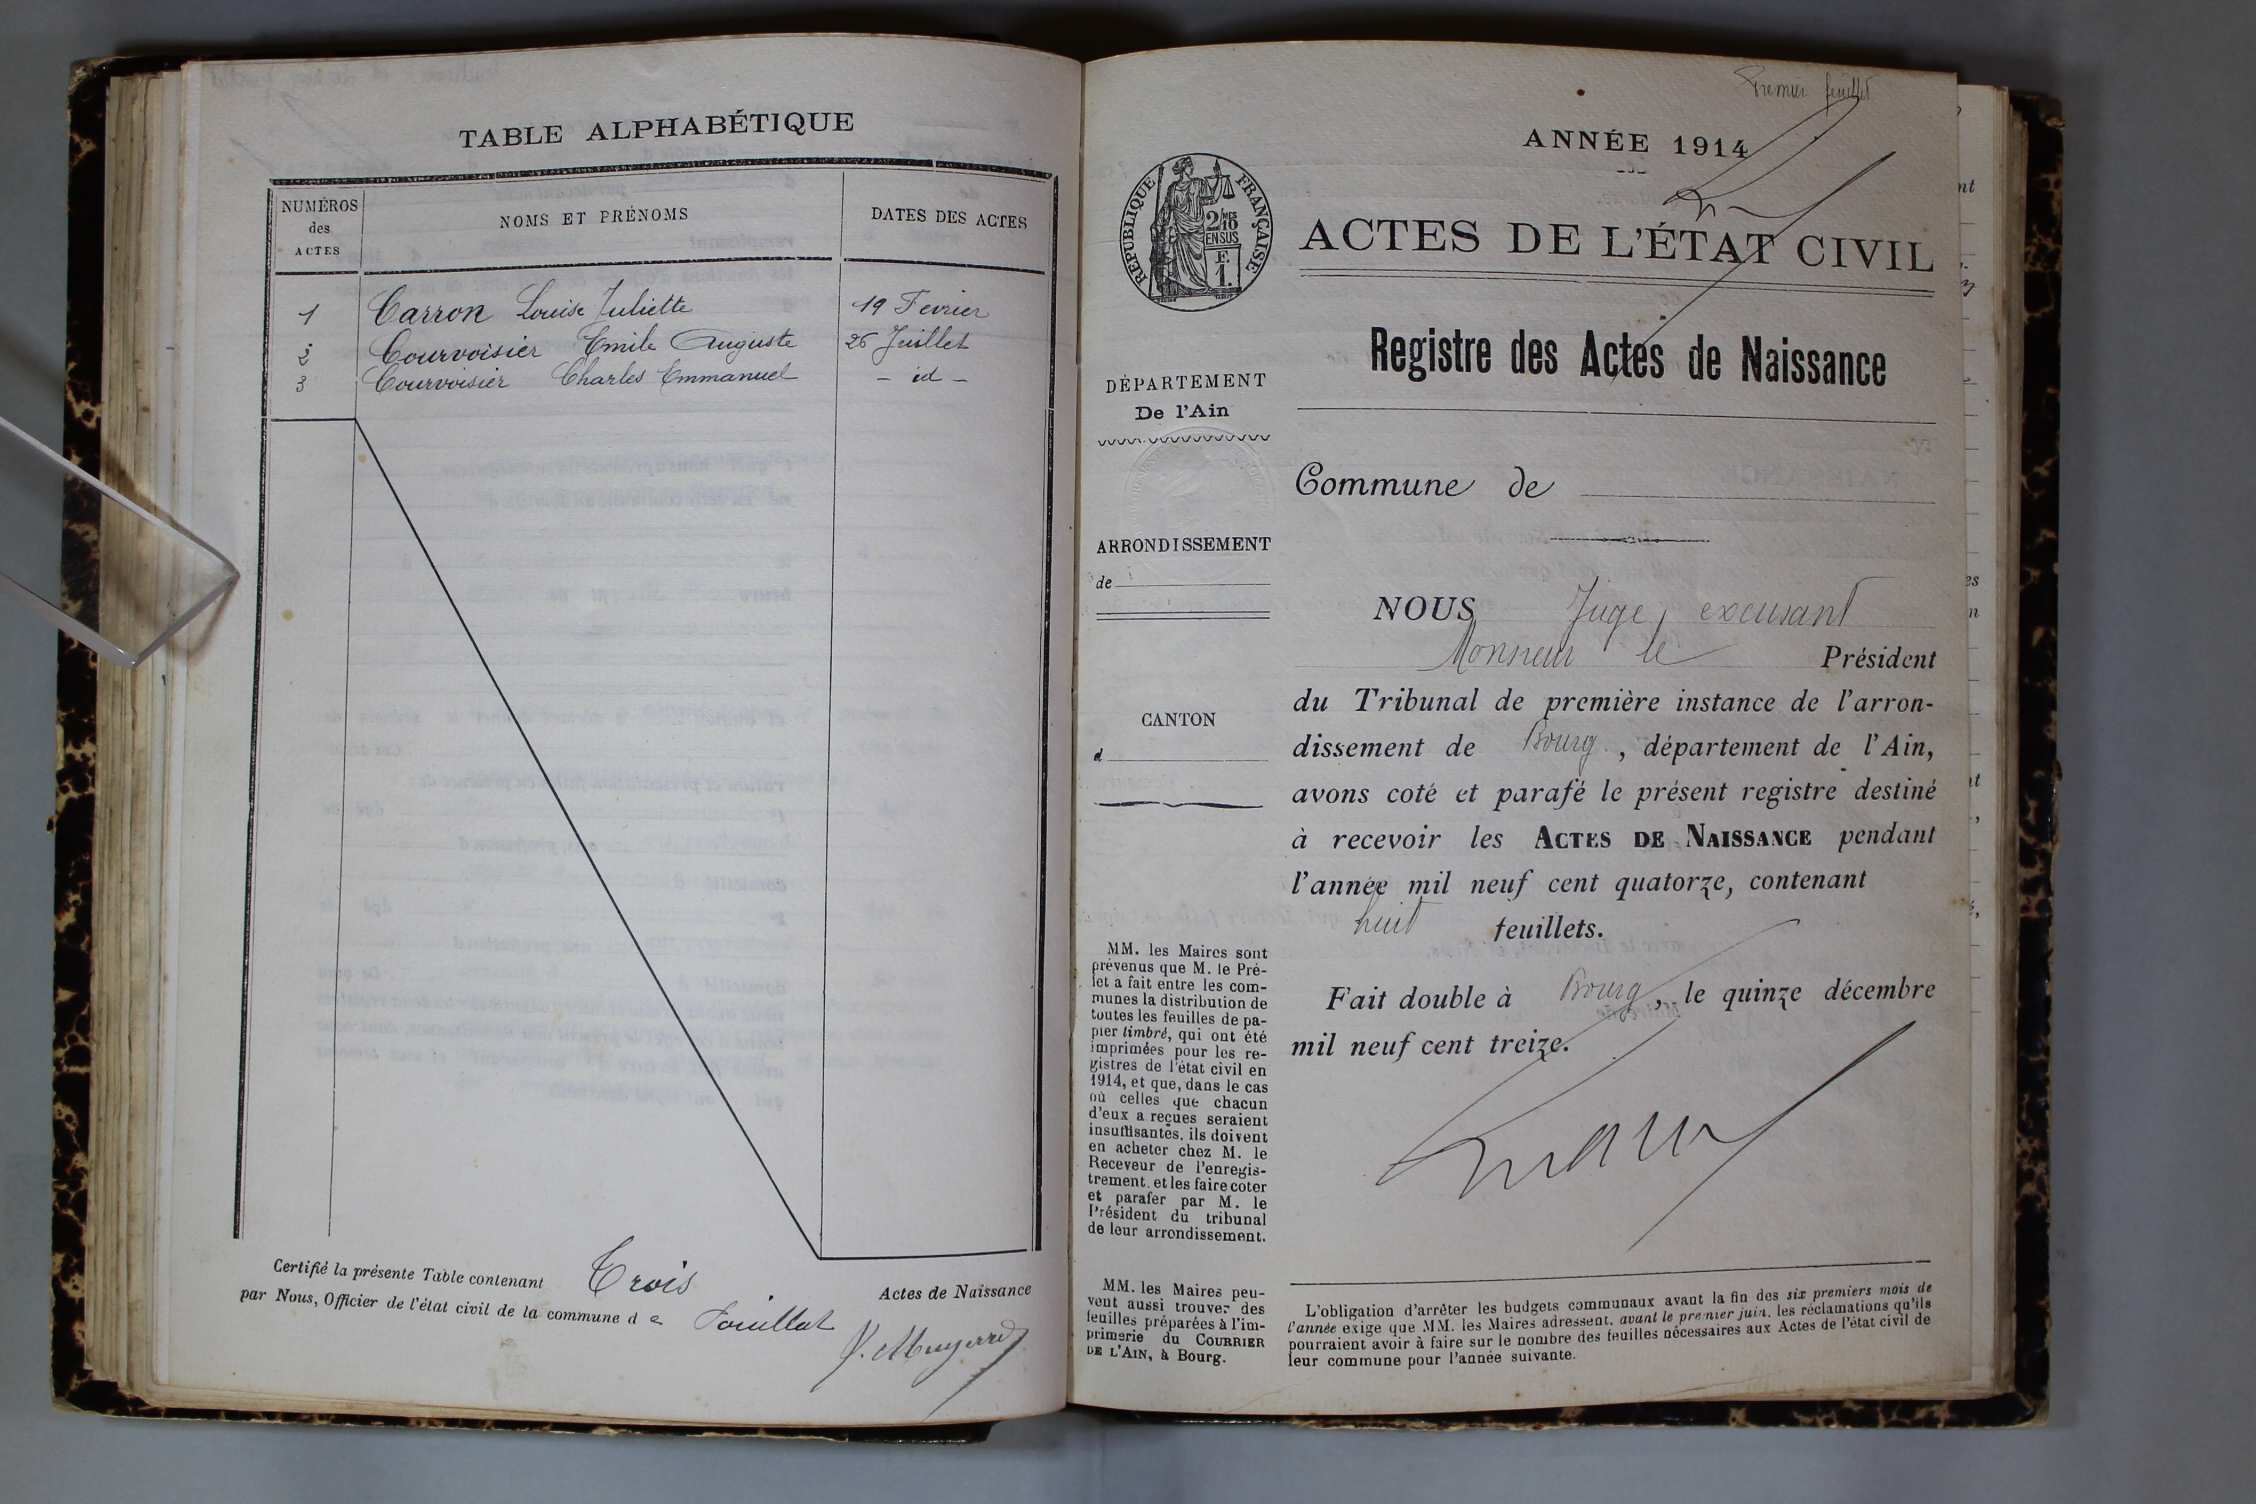 TABLE ALPHABÉTIQUE
NUMÉROS
des
ACTES
NOMS ET PRÉNOMS
DATES DES ACTES
1 Carron Louise Juliette 19 Fevrier
2 Courvoisier Emile Auguste 26 Juillet
3 Courvoisier Charles Emmanuel - id -
Certifié la présente Table contenant Trois Actes de Naissance
par Nous, Officier de l'état civil de la commune de Pouillat
Premier feuillet
ANNÉE 1914
RÉPUBLIQUE FRANÇAISE
2/10 MES
EN SUS
E.
1.
ACTES DE L'ÉTAT CIVIL
Registre des Actes de Naissance
DÉPARTEMENT
De l'Ain
ARRONDISSEMENT
de
CANTON
d
MM. les Maires sont
prévenus que M. le Pré-
fet a fait entre les com-
munes la distribution de
toutes les feuilles de pa-
pier timbré, qui ont été
imprimées pour les re-
gistres de l'état civil en
1914, et que, dans le cas
où celles que chacun
d'eux a reçues seraient
insuffisantes, ils doivent
en acheter chez M. le
Receveur de l'enregis-
trement. et les faire coter
et parafer par M. le
Président du tribunal
de leur arrondissement.
MM. les Maires peu-
vent aussi trouver des
feuilles préparées à l'im-
primerie du COURRIER
DE L'AIN, à Bourg.
Commune de
NOUS Juge, excusant
Monsieur le Président
du Tribunal de première instance de l'arron-
dissement de Bourg, département de l'Ain,
avons coté et parafé le présent registre destiné
à recevoir les ACTES DE NAISSANCE pendant
l'année mil neuf cent quatorze, contenant
huit feuillets.
Fait double à Bourg, le quinze décembre
mil neuf cent treize.
L'obligation d'arrêter les budgets communaux avant la fin des six premiers mois de
l'année exige que MM. les Maires adressent, avant le premier juin, les réclamations qu'ils
pourraient avoir à faire sur le nombre des feuilles nécessaires aux Actes de l'état civil de
leur commune pour l'année suivante.